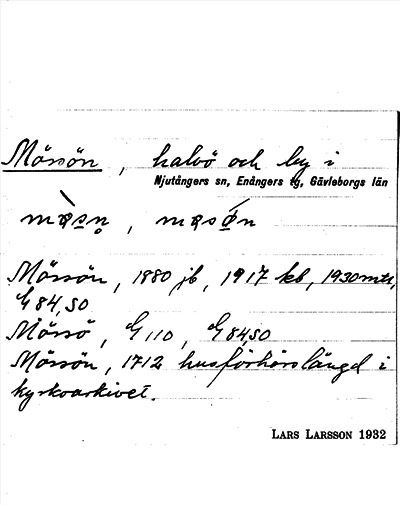 Mössön, halvö och by i
Njutångers sn, Enångers tg, Gävleborgs län
Mössön, 1880 jb, 1917 kb, 1930 mts,
G 84, SO
Mössö, G 110, G 84, SO
Mössön, 1712 husförhörslängd i
kyrkoarkivet.
LARS LARSSON 1932